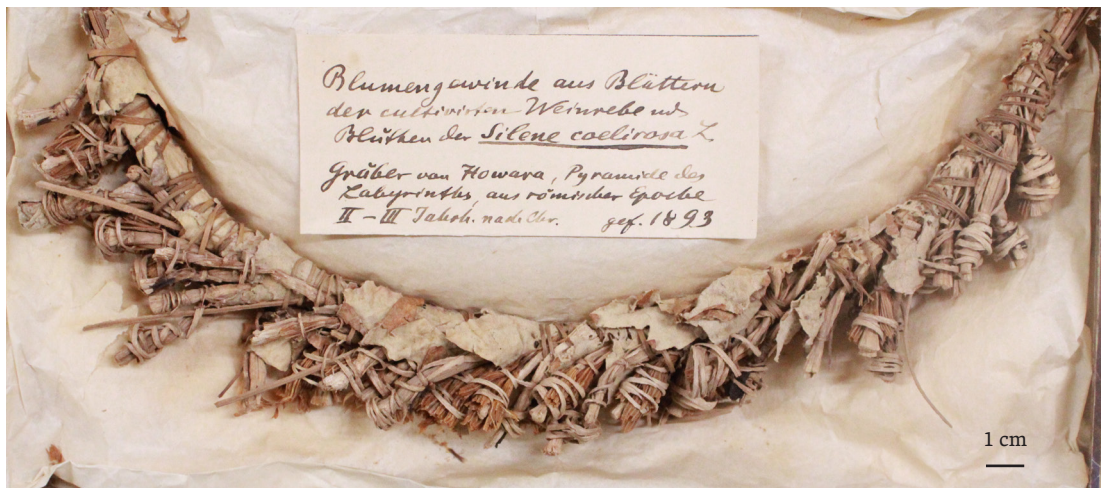 Blumengewinde aus Blättern
der cultivirten Weinrebe und
Blüthen der Silene coelirosa L
Gräber von Howara, Pyramide des
Labyrinths, aus römischer Epoche
II – III Jahrh. nach Chr. gef. 1893
1 cm